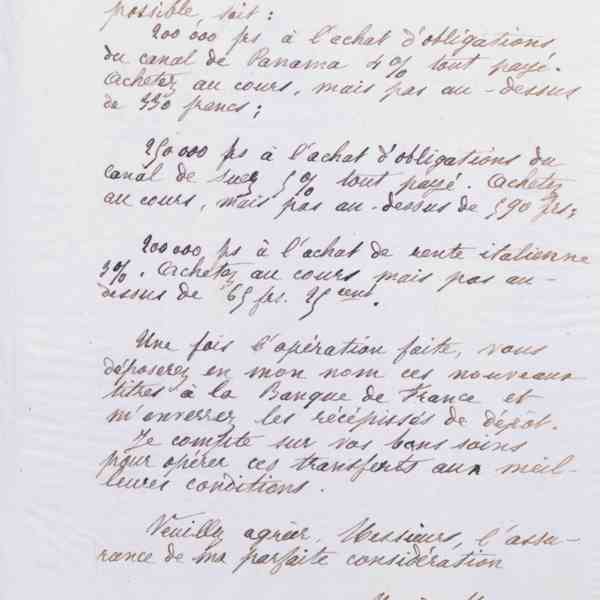 possible, soit :
200 000 frs à l'achat d'obligations
du canal de Panama 4% tout payé.
Achetez au cours, mais pas au-dessus
de 330 francs ;
250 000 frs à l'achat d'obligations du
Canal de Suez 5% tout payé. Achetez
au cours, mais pas au-dessus de 590 frs ;
200 000 frs à l'achat de rente italienne
3%. Achetez au cours mais pas au-
dessus de 65 frs. 25 cent.
Une fois l'opération faite, vous
déposerez en mon nom ces nouveaux
titres à la Banque de France et
m'enverrez les récépissés de dépôt.
Je compte sur vos bons soins
pour opérer ces transferts aux meil-
leures conditions.
Veuillez agréer, Messieurs, l'assu-
rance de ma parfaite considération